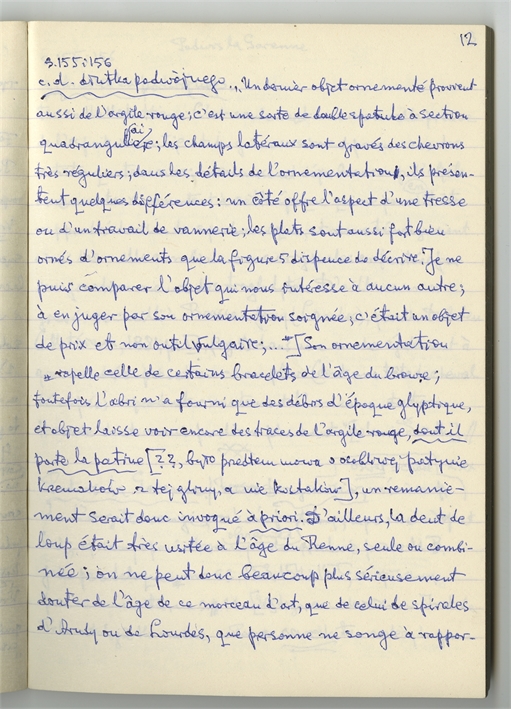 12
s. 155i156
c.d. dłutka podwójnego „Un dernier objet ornementé provient
aussi de l'argile rouge; c'est une sorte de double spatule à section
quadrangulaire; les champs latéraux sont gravés des chevrons
très réguliers; dans les détails de l'ornementation, ils présen-
tent quelques différences: un côté offre l'aspect d'une tresse
ou d'un travail de vannerie; les plats sont aussi fort bien
ornés d'ornements que la figure 5 dispence de décrire. Je ne
puis comparer l'objet qui nous intéresse à aucun autre;
à en juger par son ornementation soignée, c'était un objet
de prix et non outil vulgaire;..."] Son ornementation
rapelle celle de certains bracelets de l'âge du bronze;
toutefois l'abri n'a fourni que des débris d'époque glyptique,
et objet laisse voir encore des traces de l'argile rouge, dont il
porte la patine [??, było przedtem mowa o osobliwej patynie
krzemaków z tej gliny, a nie kostaków], un remanie-
ment serait donc invoqué à priori. D'ailleurs, la dent de
loup était très usitée à l'âge du Renne, seule ou combi-
née; on ne peut donc beaucoup plus sérieusement
douter de l'âge de ce morceau d'art, que de celui de spirales
d'Arudy ou de Lourdes, que personne ne songe à rappor-